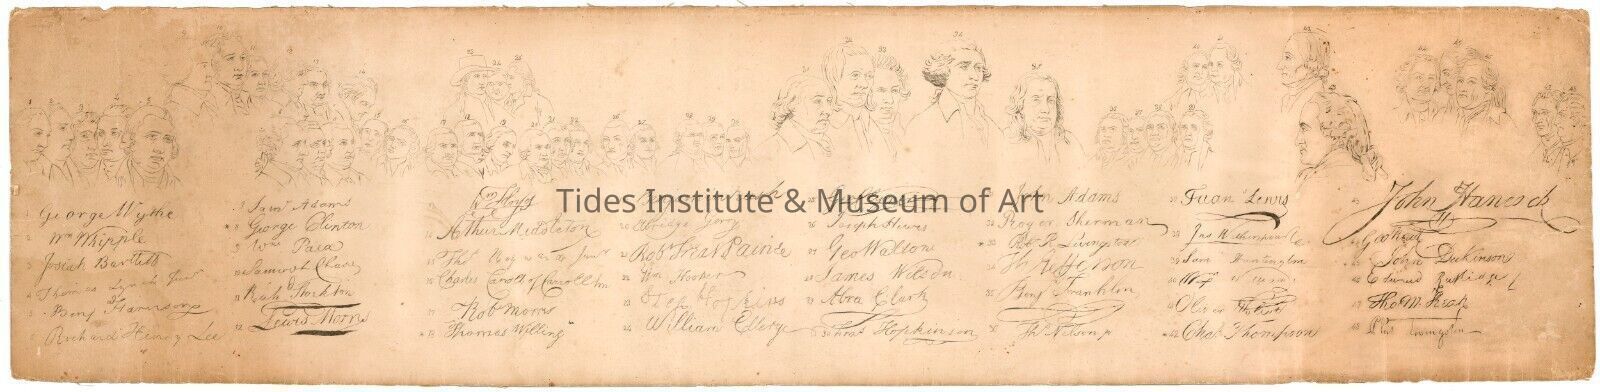 George Wythe
Wm Whipple
Josiah Bartlett
Thomas Lynch Junr
Benj Harrison
Richard Henry Lee
Saml Adams
George Clinton
Wm Paca
Samuel Chase
Richd Stockton
Lewis Morris
Wm Floyd
Arthur Middleton
Thos Heyward Junr
Charles Carroll of Carrollton
Robt Morris
Thomas Willing
Elbridge Gerry
Robt Treat Paine
Wm Hooker
Step Hopkins
William Ellery
Tides Institute & Museum of Art
Joseph Hewes
Geo Walton
James Wilson
Abra Clark
Fras Hopkinson
John Adams
Roger Sherman
Robt R Livingston
Th Jefferson
Benj Franklin
Ths Nelson jr
Fran Lewis
Jno Witherspoon
Sam Huntington
Wm
Oliver Wolcott
Chas Thompson
John Hancock
Geo Read
John Dickinson
Edward Rutledge
Tho M Kean
Livingston